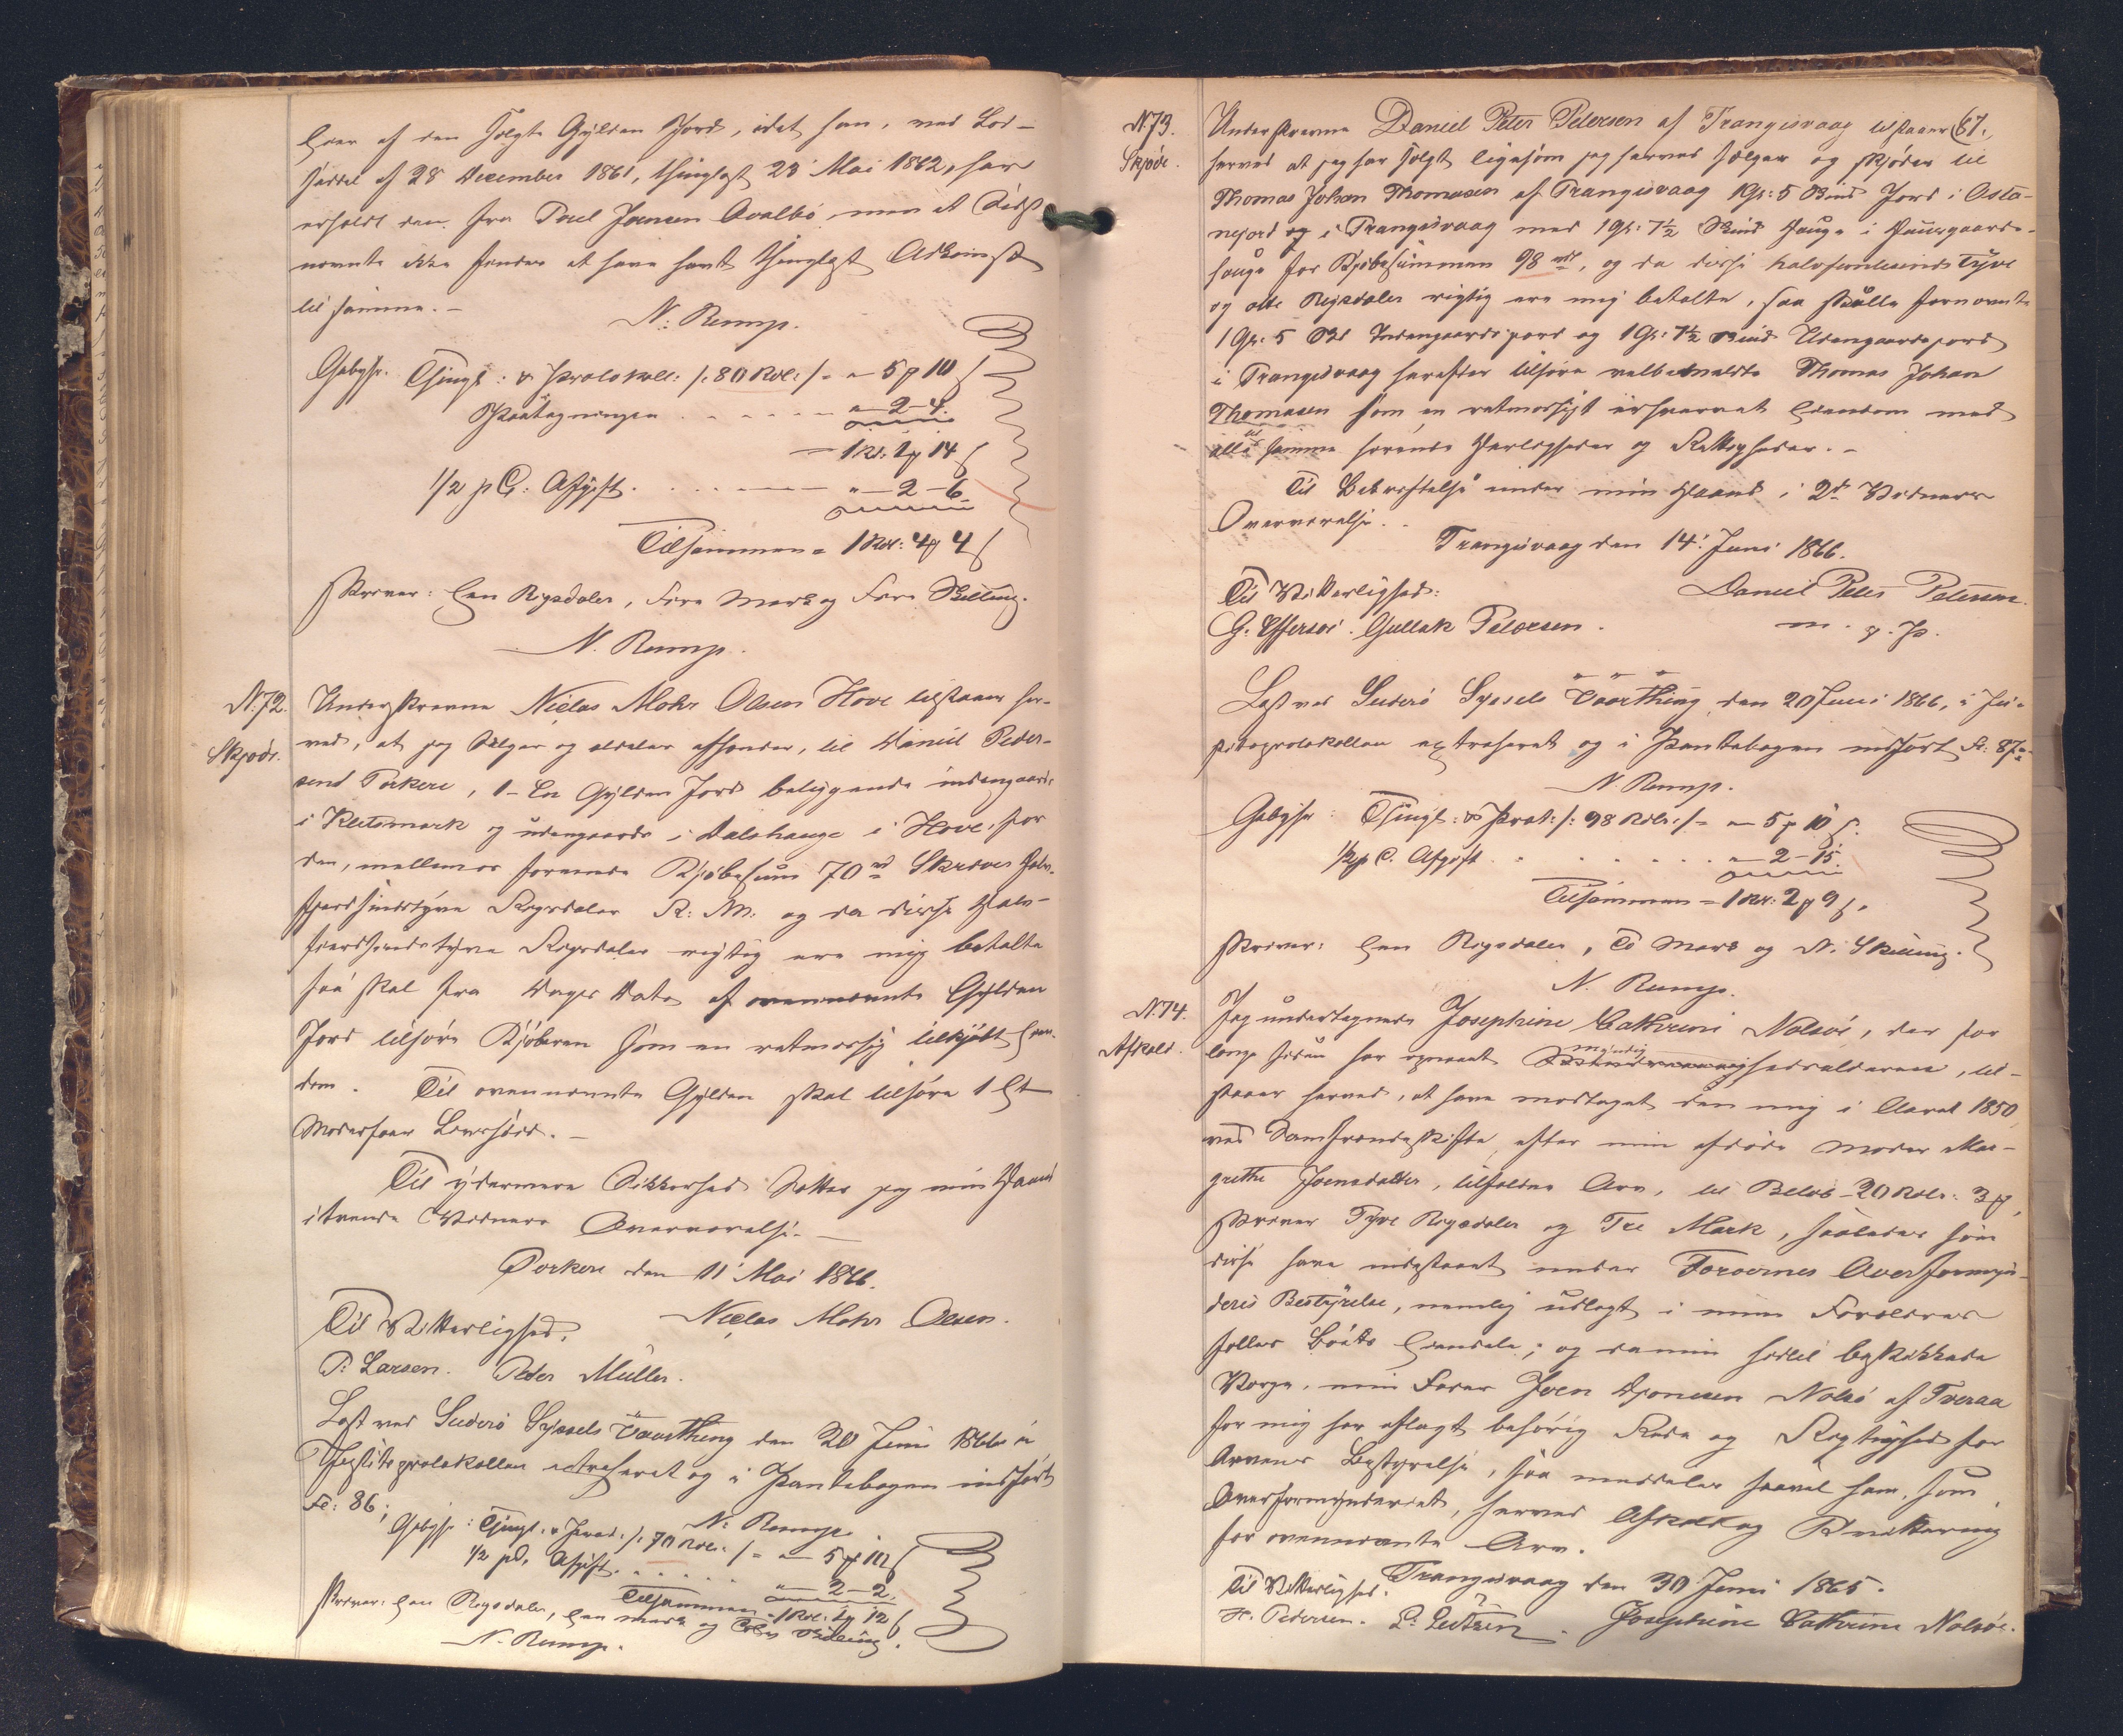 Eier af den solgte Gylden Jord, idet han, ved Lod-
seddel af 28 December 1861, thinglæst 23 Mai 1862, har
erholdt den fra Poul Joensen Qvalbø, men at Sidst-
nævnte ikke findes at have havt thinglæst Adkomst
til samme.-
N: Rump.
Gebyhr. Thingl: & Protokoll: /: 80 Rdl: /- „ - 5 ꝑ 10 ſ
Paategningen . . . . . „ - 2 - 4.
1 Rd: 2 ꝑ 14 ſ
1/2 pCt: Afgift. . . . . „ - 2 - 6
Tilsammen = 1 Rdl: 4 ꝑ 4 ſ
skriver: Een Rigsdaler, Fire Mark og Fire Skilling.
N. Rump.
N. 72.
Skjøde.
Underskrevne Niclas Mohr Olsen Hove tilstaaer her-
ved, at jeg sælger og aldeles afhænder, til Daniel Peder-
send Porkere, 1- En Gylden Jord beliggende indengaards
i Kletsmark og udengaards i Dalshauge i Hove, for
den, mellem os forenede Kjøbesum 70 rd Skrives halv-
fjerdsindstyve Rigsdaler R: M: og da disse halv-
fjerdsindstyve Rigsdaler rigtig ere mig betalte
saa skal fra Dags Dato af ovennævnte Gylden
Jord tilhøre Kjøberen som en retmæssig tilkjøbt Eien-
dom. Til ovennævnte Gylden skal tilhøre 1 Et
Moderfaar .-
Til ydermere Sikkerhed sætter jeg min Haand
i tvende Vidners Overværelse.-
Porkere den 11' Mai 1866.
Til Vitterlighed. Niclas Mohr Olsen.
P: Larsen. Peder Müller.
Læst ved Suderø Syssels Vaarthing den 20 Juni 1866 i
Justitsprotokollen extraheret og i Pantebogen indført
Fol: 86;
N: Rump
Gebyhr: Thingl. & Protoc: /: 70 Rdl: /- „ - 5 ꝑ 10 ſ
1/2 pCt. Afgift. . . . . „ - 2 - 2.
Tilsammen 1 Rdl: 1 ꝑ 12 ſ
skriver: Een Rigsdaler, Een Mark og Tolv Skilling.
N. Rump.
87.
N. 73.
Skjøde.
Underskrevne Daniel Peter Petersen af Trangisvaag tilstaaer
herved at jeg har solgt ligesom jeg herved sælger og skjøder til
Thomas Johan Thomasen af Trangisvaag 1 Gl: 5 Skind Jord i Østa-
nejord og i Trangisvaag med 1 Gl: 7½ Skind Hauge i Heiregaards-
hauge for Kjøbesummen 98 rdl, og da disse halvfemtesinds Tyve
og otte Rigsdaler rigtig ere mig betalte, saa skulle fornævnte
1 Gl: 5 Sk Indengaardsjord og 1 Gl: 7½ Skind Udengaardsjord
i Trangisvaag herefter tilhøre velbemeldte Thomas Johan
Thomasen som en retmæssigt erhvervet Eiendom med
alle til samme hørende Herligheder og Rettigheder.-
Til Bekræftelse under min Haand i 2de Vidners
Overværelse.
Trangisvaag den 14' Juni 1866.
Til Vitterlighed: Daniel Peter Petersen.
G: Effersøe. Gullak Petersen. m. p. P.
Læst ved Suderø Syssels Vaarthing den 20 Juni 1866, i Ju-
stitsprotokollen extraheret og i Pantebogen indført Fol: 87.
N. Rump.
Gebyhr: Thingl: & Prot: /: 98 Rdlr: /- „ - 5 ꝑ 10 ſ.
1/2 p C. Afgift . . . . . . „ - 2 - 15.
Tilsammen = 1 Rdl: 2 ꝑ 9 ſ.
skriver: Een Rigsdaler, To Mark og Ni Skilling.
N. Rump.
N. 74.
Afkald.
Jeg undertegnede Josephine Cathrine Nolsøe, der for
længe siden har opnaaet myndighedsalderen, til-
staaer herved, at have modtaget den mig i Aaret 1850
ved Samfrændeskifte efter min afdøde Moder Mar-
grethe Joensdatter, tilfaldne Arv, til Beløb 20 Rdlr: 3 ꝑ,
skriver Tyve Rigsdaler og Tre Mark, saaledes som
disse have indestaaet under Færøernes Overformyn-
deries Bestyrelse, nemlig udlagt i mine Forældres
fælles Boets Eiendele; og da min hidtil beskikkede
Værge, min Fader Joen Djonesen Nolsø af Tveraa
for mig har aflagt behørig Rede og Rigtighed for
Arvens Bestyrelse, saa meddeler saavel ham, som
Overformynderiet, herved Afkald og Kvittering
for ovennævnte Arv.
Trangisvaag den 30 Juni 1865.
Til Vitterlighed.
H. Pedersen. Josephine Cathrine Nolsøe.